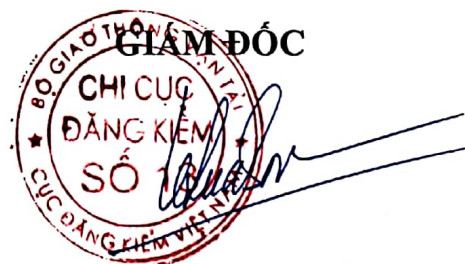 GIÁM ĐỐC
BỘ GIAO THÔNG VẬN TẢI
CHI CỤC
ĐĂNG KIỂM
SỐ
CỤC ĐĂNG KIỂM VIỆT NAM